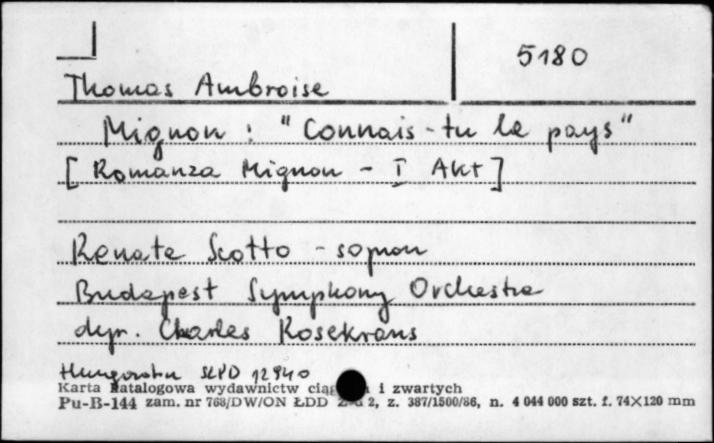 5180
Thomas Ambroise
Mignon : "Connais-tu le pays"
[Romanza Mignon - I Akt]
Renata Scotto - sopran
Budapest Symphony Orchestra
dyr. Charles Rosekrans
Hungaroton SLPD 12940
Karta katalogowa wydawnictw i zwartych
Pu-B-144 zam. nr 768/DW/ON ŁDD 2, z. 387/1500/86, n. 4 044 000 szt. f. 74×120 mm